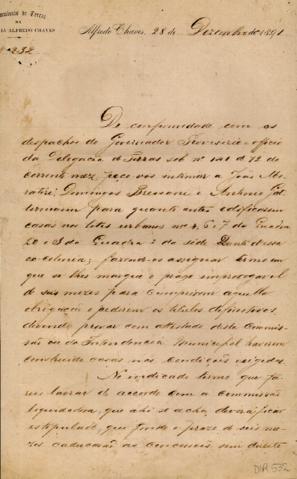 Commissão de Terras
NA
ALFREDO CHAVES
Nº 232
Alfredo Chaves, 28 de Dezembro de 1891
De conformidade com os
despachos do Governador Provisorio e officio
da Delegacia de Terras sob nº 141 d 12 do
corrente mez, peço vos intimar a João
Domingos Bressone e Antonio
para quanto antes edificarem
casas nos lotes urbanos nº 4, 6, 7 da Quadra
20 e 3 da Quadra 2 da séde dessa
ex-colonia; fazendo-os assignar termo em
que se lhes marque o prazo improrogavel
de seis mezes para cumprirem aquella
obrigação e pedirem os titulos definitivos,
devendo provar com attestado desta Commis-
são ou da Intendencia Municipal haverem
construido casas nas condições exigidas.
No indicado termo que fa-
reis lavrar de accordo com a Commissão
liquidadora, que ahi se acha, deverá ficar
estipulado, que findo o prazo de seis me-
zes caducarão as concessões, sem direito
DIR 532